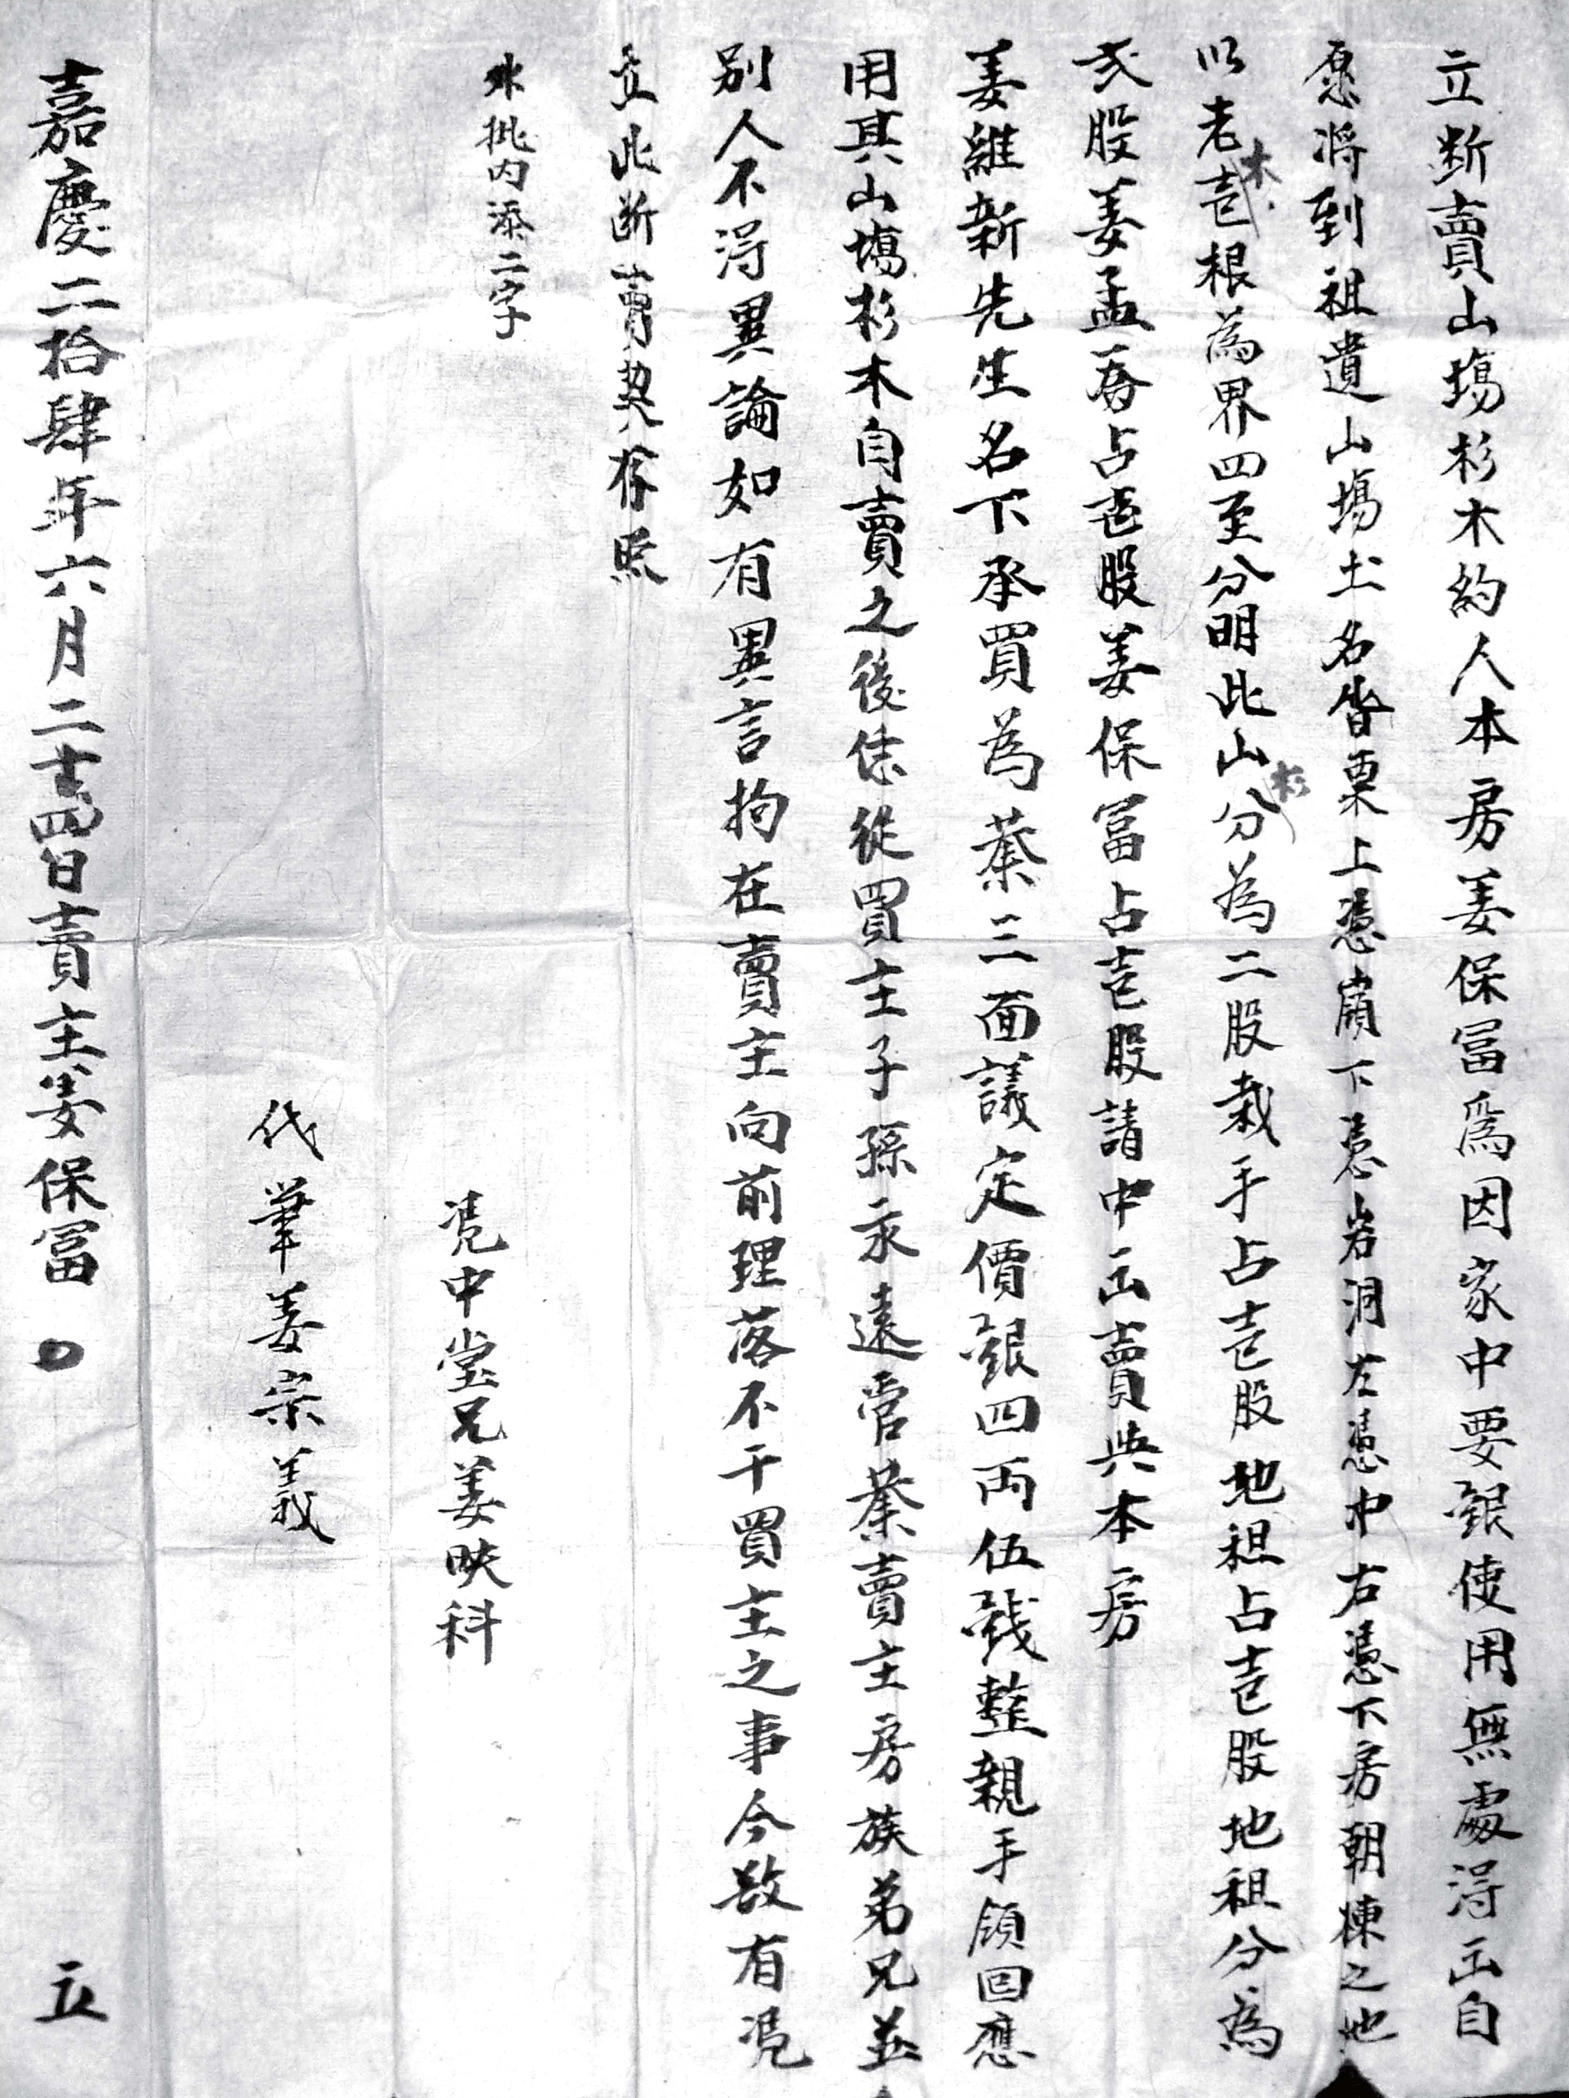 立断賣山塲杉木約人本房姜保冨爲因家中要銀使用無處淂出自
愿将到祖遺山塲土名皆栗上憑嶺下憑岩洞左憑冲右憑下房朝棟之地
以老木壹根為界四至分明此山杉分為二股栽手占壹股地租占壹股地租分為
弍股姜孟春占壹股姜保冨占壹股請中出賣與本房
姜維新先生名下承買為業三面議定價銀四両伍錢整親手領回應
用其山塲杉木自賣之後恁從買主子孫永遠管業賣主房族弟兄並
别人不淂異論如有異言拘在賣主向前理落不干買主之事今欲有凴
立此断賣契存照
外批内添二字
凴中堂兄姜映科
代筆姜宗義
嘉慶二拾肆年六月二十四日賣主姜保冨 立